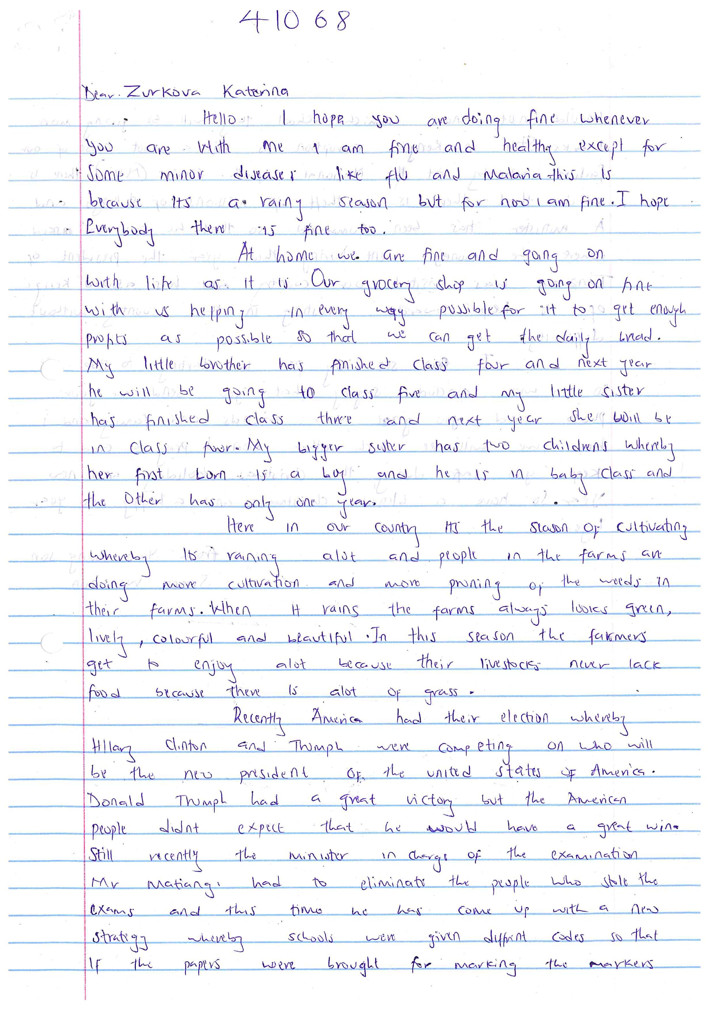 41068
Dear. Zurkova Katerina
Hello. I hope you are doing fine whenever
you are. With me I am fine and healthy except for
some minor diseases like flu and Malaria. this is
because, Its a rainy season but for now I am fine. I hope
Everybody there is fine too.
At home we are fine and going on
with life as it is. Our grocery shop is going on fine
with us helping in every way possible for it to get enough
profits as possible so that we can get the daily bread.
My little brother has finished class four and next year
he will be going to class five and my little sister
has finished class three and next year she will be
in class four. My bigger sister has two childrens whereby
her first born is a boy and he is in baby class and
the other has only one year.
Here in our country Its the season of cultivating
whereby Its raining alot and people in the farms are
doing more cultivation and more pruning of the weeds in
their farms. When it rains the farms always looks green,
lively, colourful and beautiful. In this season the farmers
get to enjoy alot because their livestocks never lack
food because there is alot of grass.
Recently America had their election whereby
Hilary Clinton and Thumph were competing on who will
be the new president of the united states of America.
Donald Thumph had a great victory but the American
people didnt expect that he would have a great win.
Still recently the minister in charge of the examination
Mr Matiangi had to eliminate the people who stole the
exams and this time he has come up with a new
strategy whereby schools were given diffrint codes so that
If the papers were brought for marking the markers